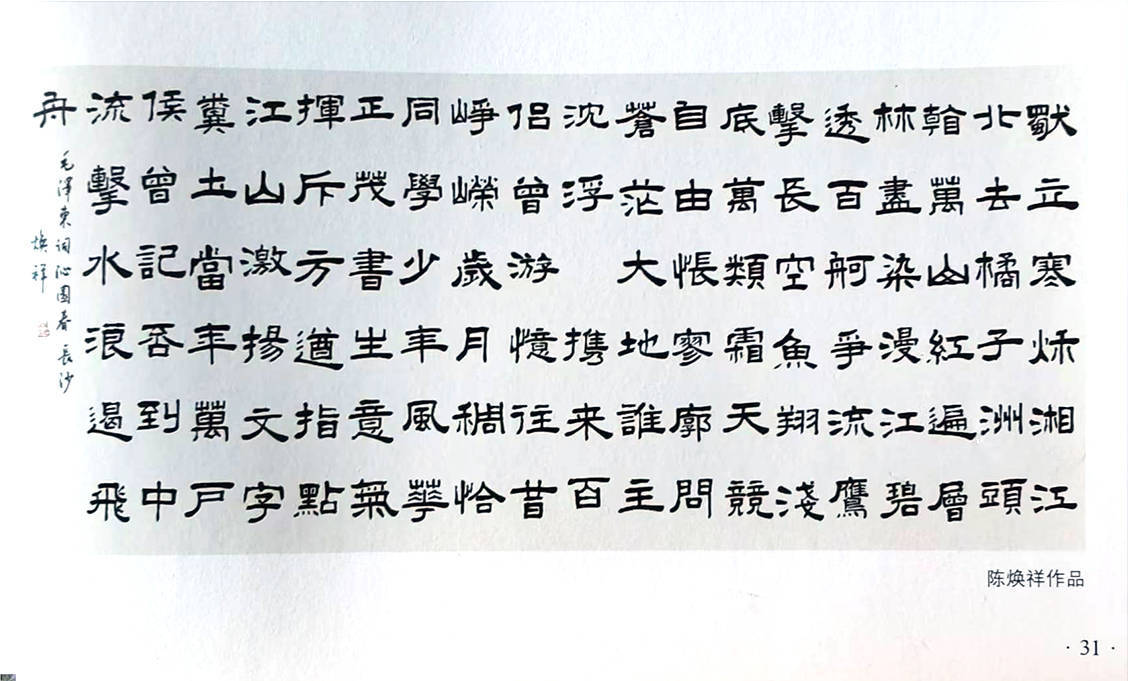 獨立寒秌湘江
北去橘子洲頭
看萬山紅遍層
林盡染漫江碧
透百舸爭流鷹
擊長空魚翔淺
底萬類霜天競
自由悵寥廓問
蒼茫大地誰主
沈浮 携来百
侣曾游憶往昔
崢嶸歲月稠恰
同學少年風華
正茂書生意氣
揮斥方遒指點
江山激揚文字
糞土當年萬户
侯曾記否到中
流擊水浪遏飛
舟
毛澤東词沁園春長沙
焕祥
陈焕祥作品
·31·